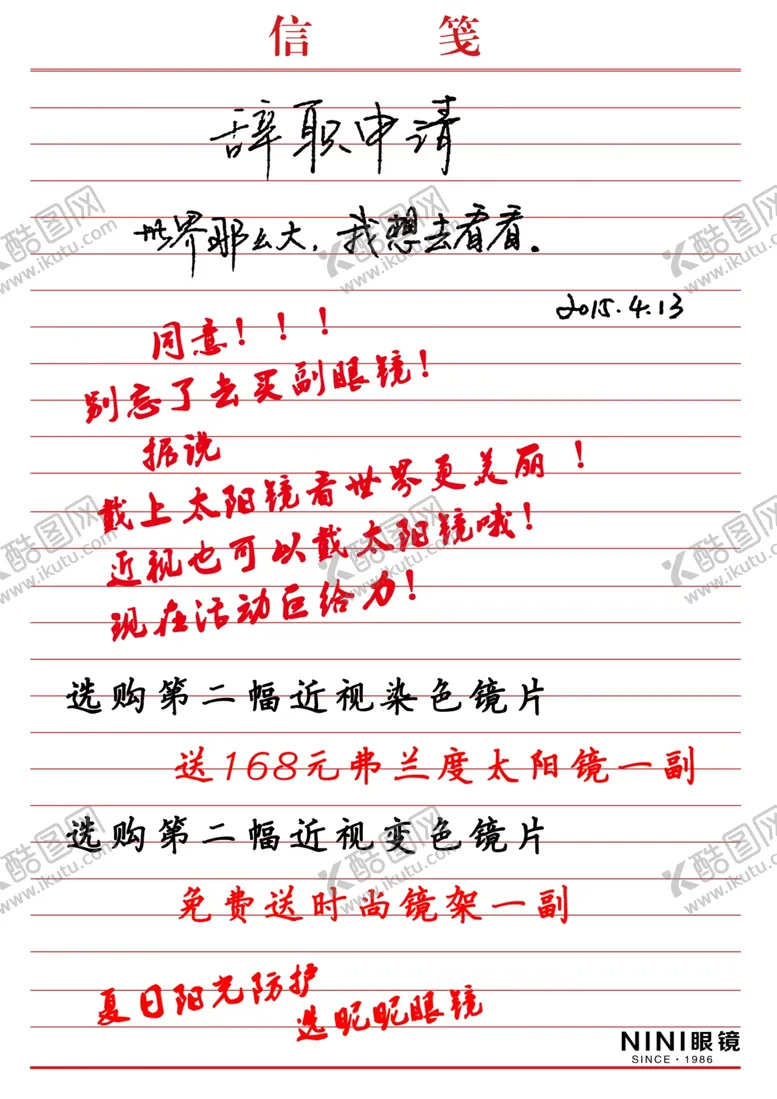 信 笺
辞职申请
世界那么大，我想去看看。
2015.4.13
同意！！！
别忘了去买副眼镜！
据说
戴上太阳镜看世界更美丽！
近视也可以戴太阳镜哦！
现在活动巨给力！
选购第二幅近视染色镜片
送168元弗兰度太阳镜一副
选购第二幅近视变色镜片
免费送时尚镜架一副
夏日阳光防护
选昵昵眼镜
NINI眼镜
SINCE·1986
酷图网
www.ikutu.com